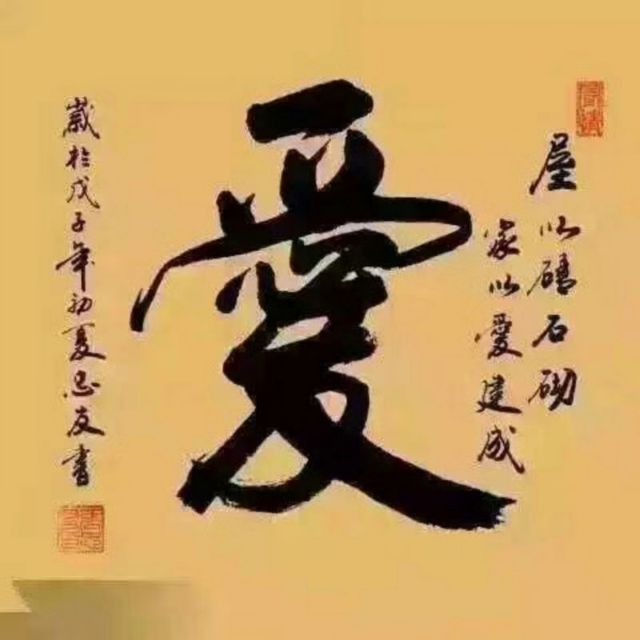 屋以砖石砌
家以愛建成
愛
歲於戊子年初夏忠友書